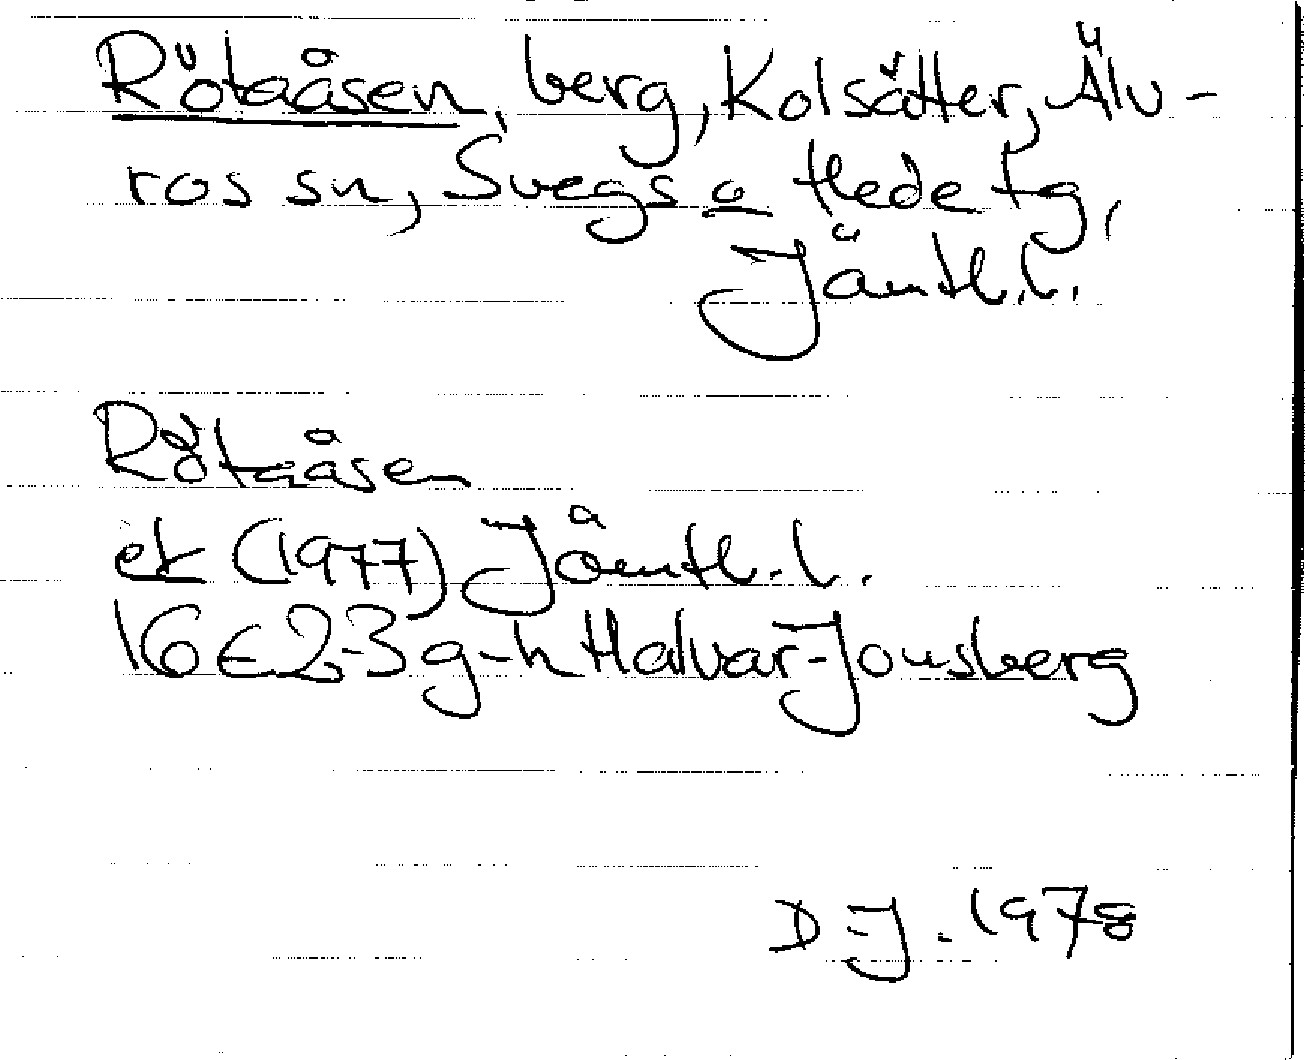 Rötaåsen, berg, Kolsätter, Älv-
ros sn, Svegs o Hede tg,
Jämtl.l.
Rötaåsen
ek (1977) Jämtl.l.
16E2-3g-h Halvar-Jonsberg
D.J. 1978